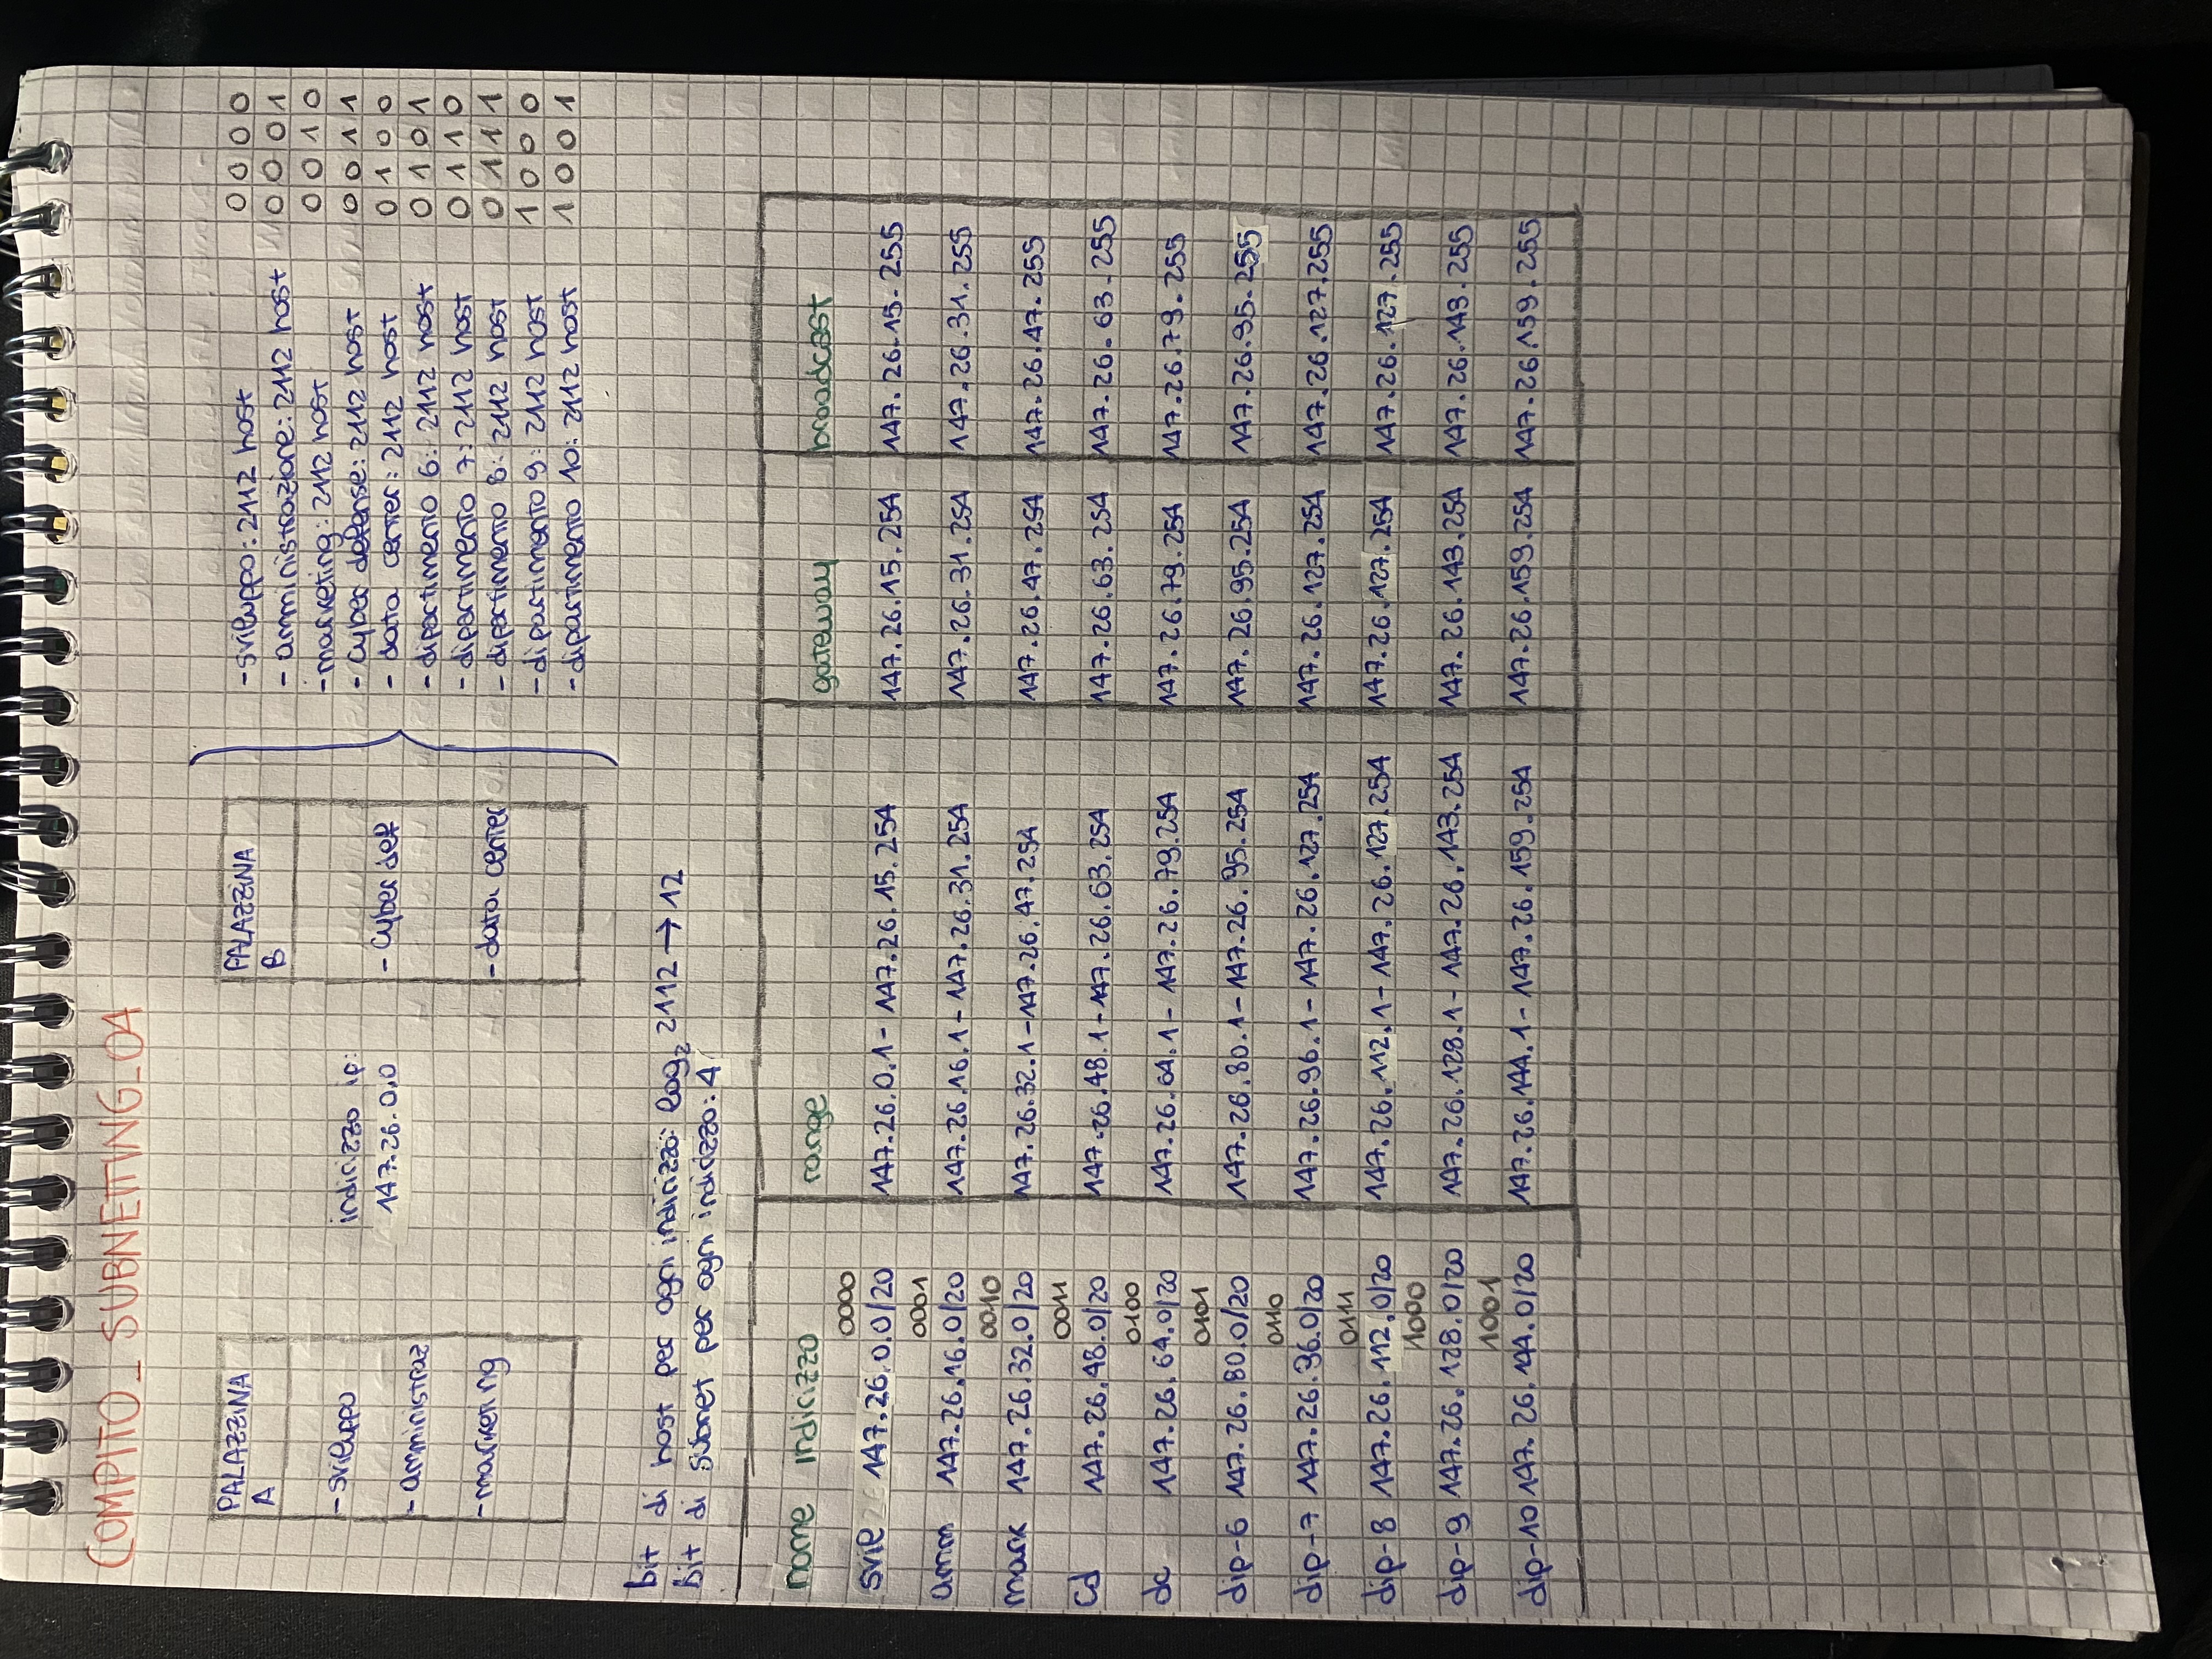 COMPITO_SUBNETTING_04
PALAZZINA
A
-sviluppo
- amministraz
-marketing
indirizzo ip:
147.26.0.0
PALAZZINA
B
- Cyber def
- data center
-sviluppo: 2112 host 0000
- amministrazione: 2112 host 0001
-marketing: 2112 host 0010
- cyber defense: 2112 host 0011
- data center: 2112 host 0100
- dipartimento 6: 2112 host 0101
- dipartimento 7: 2112 host 0110
- dipartimento 8: 2112 host 0111
- dipartimento 9: 2112 host 1000
- dipartimento 10: 2112 host 1001
bit di host per ogni indirizzo: log₂ 2112 → 12
Bit di subnet per ogni indirizzo: 4
nome indirizzo range gateway broadcast
0000
svil 147.26.0.0/20 147.26.0.1 - 147.26.15.254 147.26.15.254 147.26.15.255
0001
amm 147.26.16.0/20 147.26.16.1 - 147.26.31.254 147.26.31.254 147.26.31.255
0010
mark 147.26.32.0/20 147.26.32.1 - 147.26.47.254 147.26.47.254 147.26.47.255
0011
cd 147.26.48.0/20 147.26.48.1 - 147.26.63.254 147.26.63.254 147.26.63.255
0100
dc 147.26.64.0/20 147.26.64.1 - 147.26.79.254 147.26.79.254 147.26.79.255
0101
dip-6 147.26.80.0/20 147.26.80.1 - 147.26.95.254 147.26.95.254 147.26.95.255
0110
dip-7 147.26.96.0/20 147.26.96.1 - 147.26.127.254 147.26.127.254 147.26.127.255
0111
dip-8 147.26.112.0/20 147.26.112.1 - 147.26.127.254 147.26.127.254 147.26.127.255
1000
dip-9 147.26.128.0/20 147.26.128.1 - 147.26.143.254 147.26.143.254 147.26.143.255
1001
dip-10 147.26.144.0/20 147.26.144.1 - 147.26.159.254 147.26.159.254 147.26.159.255